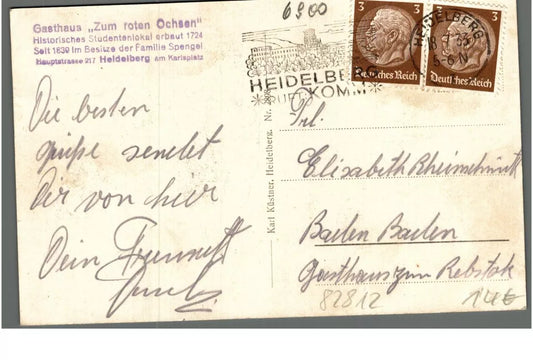 Gasthaus „Zum roten Ochsen"
Historisches Studentenlokal erbaut 1724
Seit 1839 im Besitze der Familie Spengel
Hauptstrasse 217 Heidelberg am Karlsplatz
6900
HEIDELBERG
KOMM
3
3
Deutsches Reich
Deutsches Reich
HEIDELBERG
Die besten
Grüße sendet
Dir von hier
Dein
Karl Küstner, Heidelberg. Nr.
Frl.
Elisabeth
Baden Baden
Gasthaus zum Rebstok
82812
14€